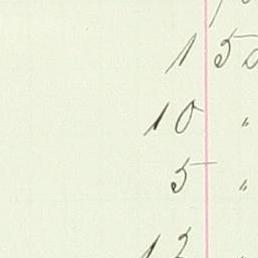 1 50
10 "
5 "
12 "